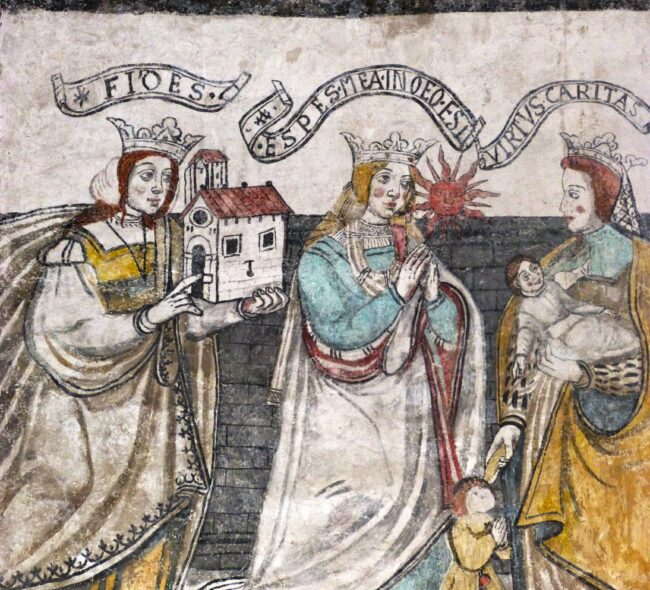 FIDES ·
· ESPES · MEA · IN DEO · EST
VIRTUS CARITAS